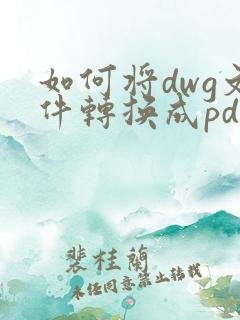 如何将dwg文
件轉换成pd
裴桂蘭
未经同意禁止转载